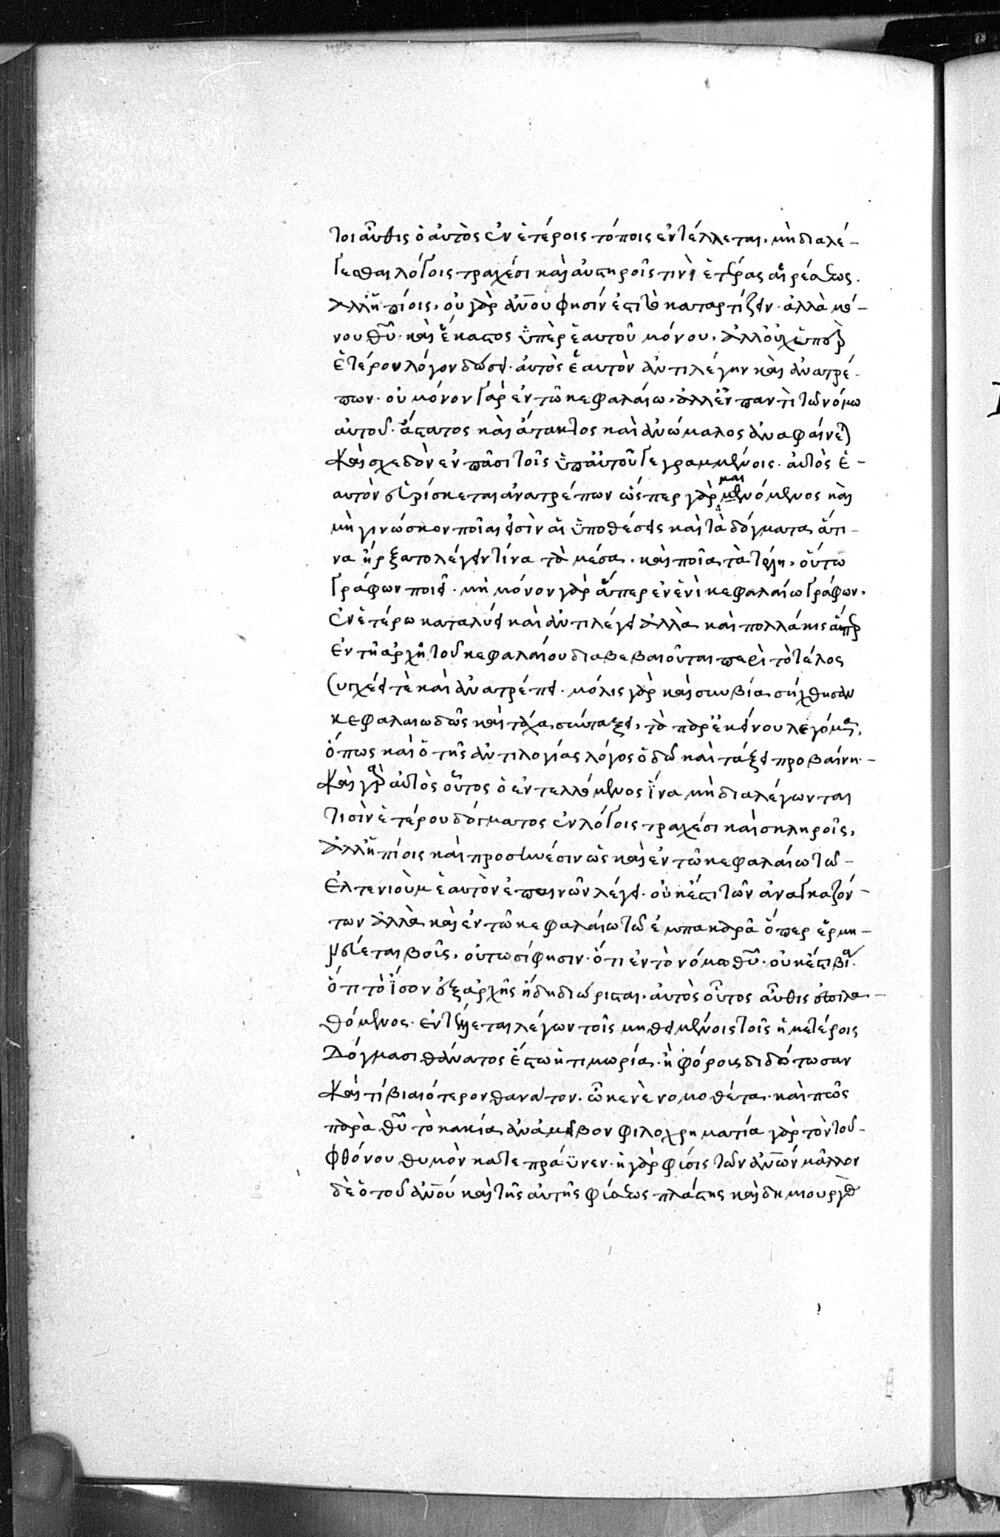 τοι αὖθις ὁ αὐτὸς ἐν ἑτέροις τόποις ἐντέλλεται, μὴ διαλέ-
γεσθαι λόγοις τραχέσι καὶ αὐστηροῖς τινὶ ἑτέρας αἱρέσεως.
ἀλλ' ἠπίοις, οὐ γὰρ ἀνου φησίν ἐστι τὸ καταρτίζειν. ἀλλὰ μό-
νου θυ. καὶ ἕκαστος ὑπὲρ ἑαυτοῦ μόνου, ἀλλ' οὐχ ὑπὲρ
ἑτέρου λόγον δώσει. αὐτὸς ἑαυτὸν ἀντιλέγων καὶ ἀνατρέ-
πων. οὐ μόνον γὰρ ἐν τῶ κεφαλαίω, ἀλλ' ἐν παντὶ τῶ νόμω
αὐτοῦ. ἄστατος καὶ ἄτακτος καὶ ἀνώμαλος ἀναφαίνεται
καὶ σχεδὸν ἐν πᾶσι τοῖς ὑπ' αὐτοῦ γεγραμμένοις. αὐτὸς ἑ-
αυτὸν εὑρίσκεται ἀνατρέπων ὥσπερ γὰρ μαινόμενος καὶ
μὴ γινώσκον ποῖαι εἰσὶν αἱ ὑποθέσεις καὶ τὰ δόγματα ἅτι-
να ἤρξατο λέγειν τίνα τὰ μέσα. καὶ ποῖα τὰ τέλη, οὕτω
γράφων ποιεῖ. μὴ μόνον γὰρ ἅπερ ἐν ἑνὶ κεφαλαίω γράφων,
ἐν ἑτέρω καταλύει καὶ ἀντιλέγει ἀλλὰ καὶ πολλάκις ἅπερ
ἐν τῆ ἀρχῆ τοῦ κεφαλαίου διαβεβαιοῦται περὶ τὸ τέλος
συγχέει τὲ καὶ ἀνατρέπει. μόλις γὰρ καὶ σὺν βία συνήχθησαν
κεφαλαιωδῶς καὶ τάχα συντάξει, τὰ παρ' ἐκείνου λεγόμενα,
ὅπως καὶ ὁ τῆς ἀντιλογίας λόγος ὁδῶ καὶ τάξει προβαίνη.-
καὶ γὰρ αὐτὸς οὗτος ὁ ἐντελλόμενος ἵνα μὴ διαλέγωνται
τισὶν ἑτέρου δόγματος ἐν λόγοις τραχέσι καὶ σκληροῖς,
ἀλλ' ἠπίοις καὶ προσηνέσιν ὡς καὶ ἐν τῶ κεφαλαίω τῶ-
ἐλτενιοὺμ ἑαυτὸν ἐπαινῶν λέγει. οὐκ ἔστι τῶν ἀναγκαζόν-
των ἀλλὰ καὶ ἐν τῶ κεφαλαίω τῶ ἐμπακαρᾶ ὅπερ ἑρμη-
νεύεται βοῖς, οὑτωσί φησιν. ὅτι ἐν τὸ νόμω θυ. οὐκ ἔστι βία.
ὅτι τὸ ἴσον ἐξαρχῆς ἤδη διώρισται. αὐτὸς οὗτος αὖθις ἐπιλα-
θόμενος. ἐντέλλεται λέγων τοῖς μὴ πειθομένοις τοῖς ἡμετέροις
δόγμασι θάνατος ἔστω ἡ τιμωρία. ἢ φόρους διδότωσαν
καὶ τί βιαιότερον θανάτου. ὦ κενὲ νομοθέτα. καὶ πῶς
παρὰ θυ τὸ κακία ἀνάμειβον φιλοχρηματία γὰρ τὸν τοῦ-
φθόνου θυμὸν κατεπράϋνεν. ἡ γὰρ φύσις τῶν ἀνων μᾶλλον
δὲ ὁ τοῦ ἀνου καὶ τῆς αὐτῆς φύσεως πλάστης καὶ δημιουργὸς